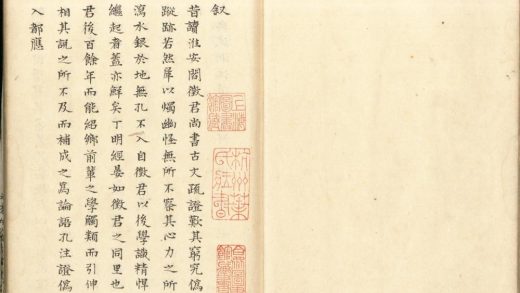 叙
昔讀淮安閻徵君尚書古文疏證歎其窮究偽
蹤跡若然犀以燭幽怪無所不察其心力之所
瀉水銀於地無孔不入自徵君以後學識精悍
繼起者蓋亦鮮矣丁明經晏如徵君之同里也
君後百餘年而能紹鄉前輩之學觸類而引伸
相其說之所不及而補成之爲論語孔注證偽
入都應
杭州葉氏藏書